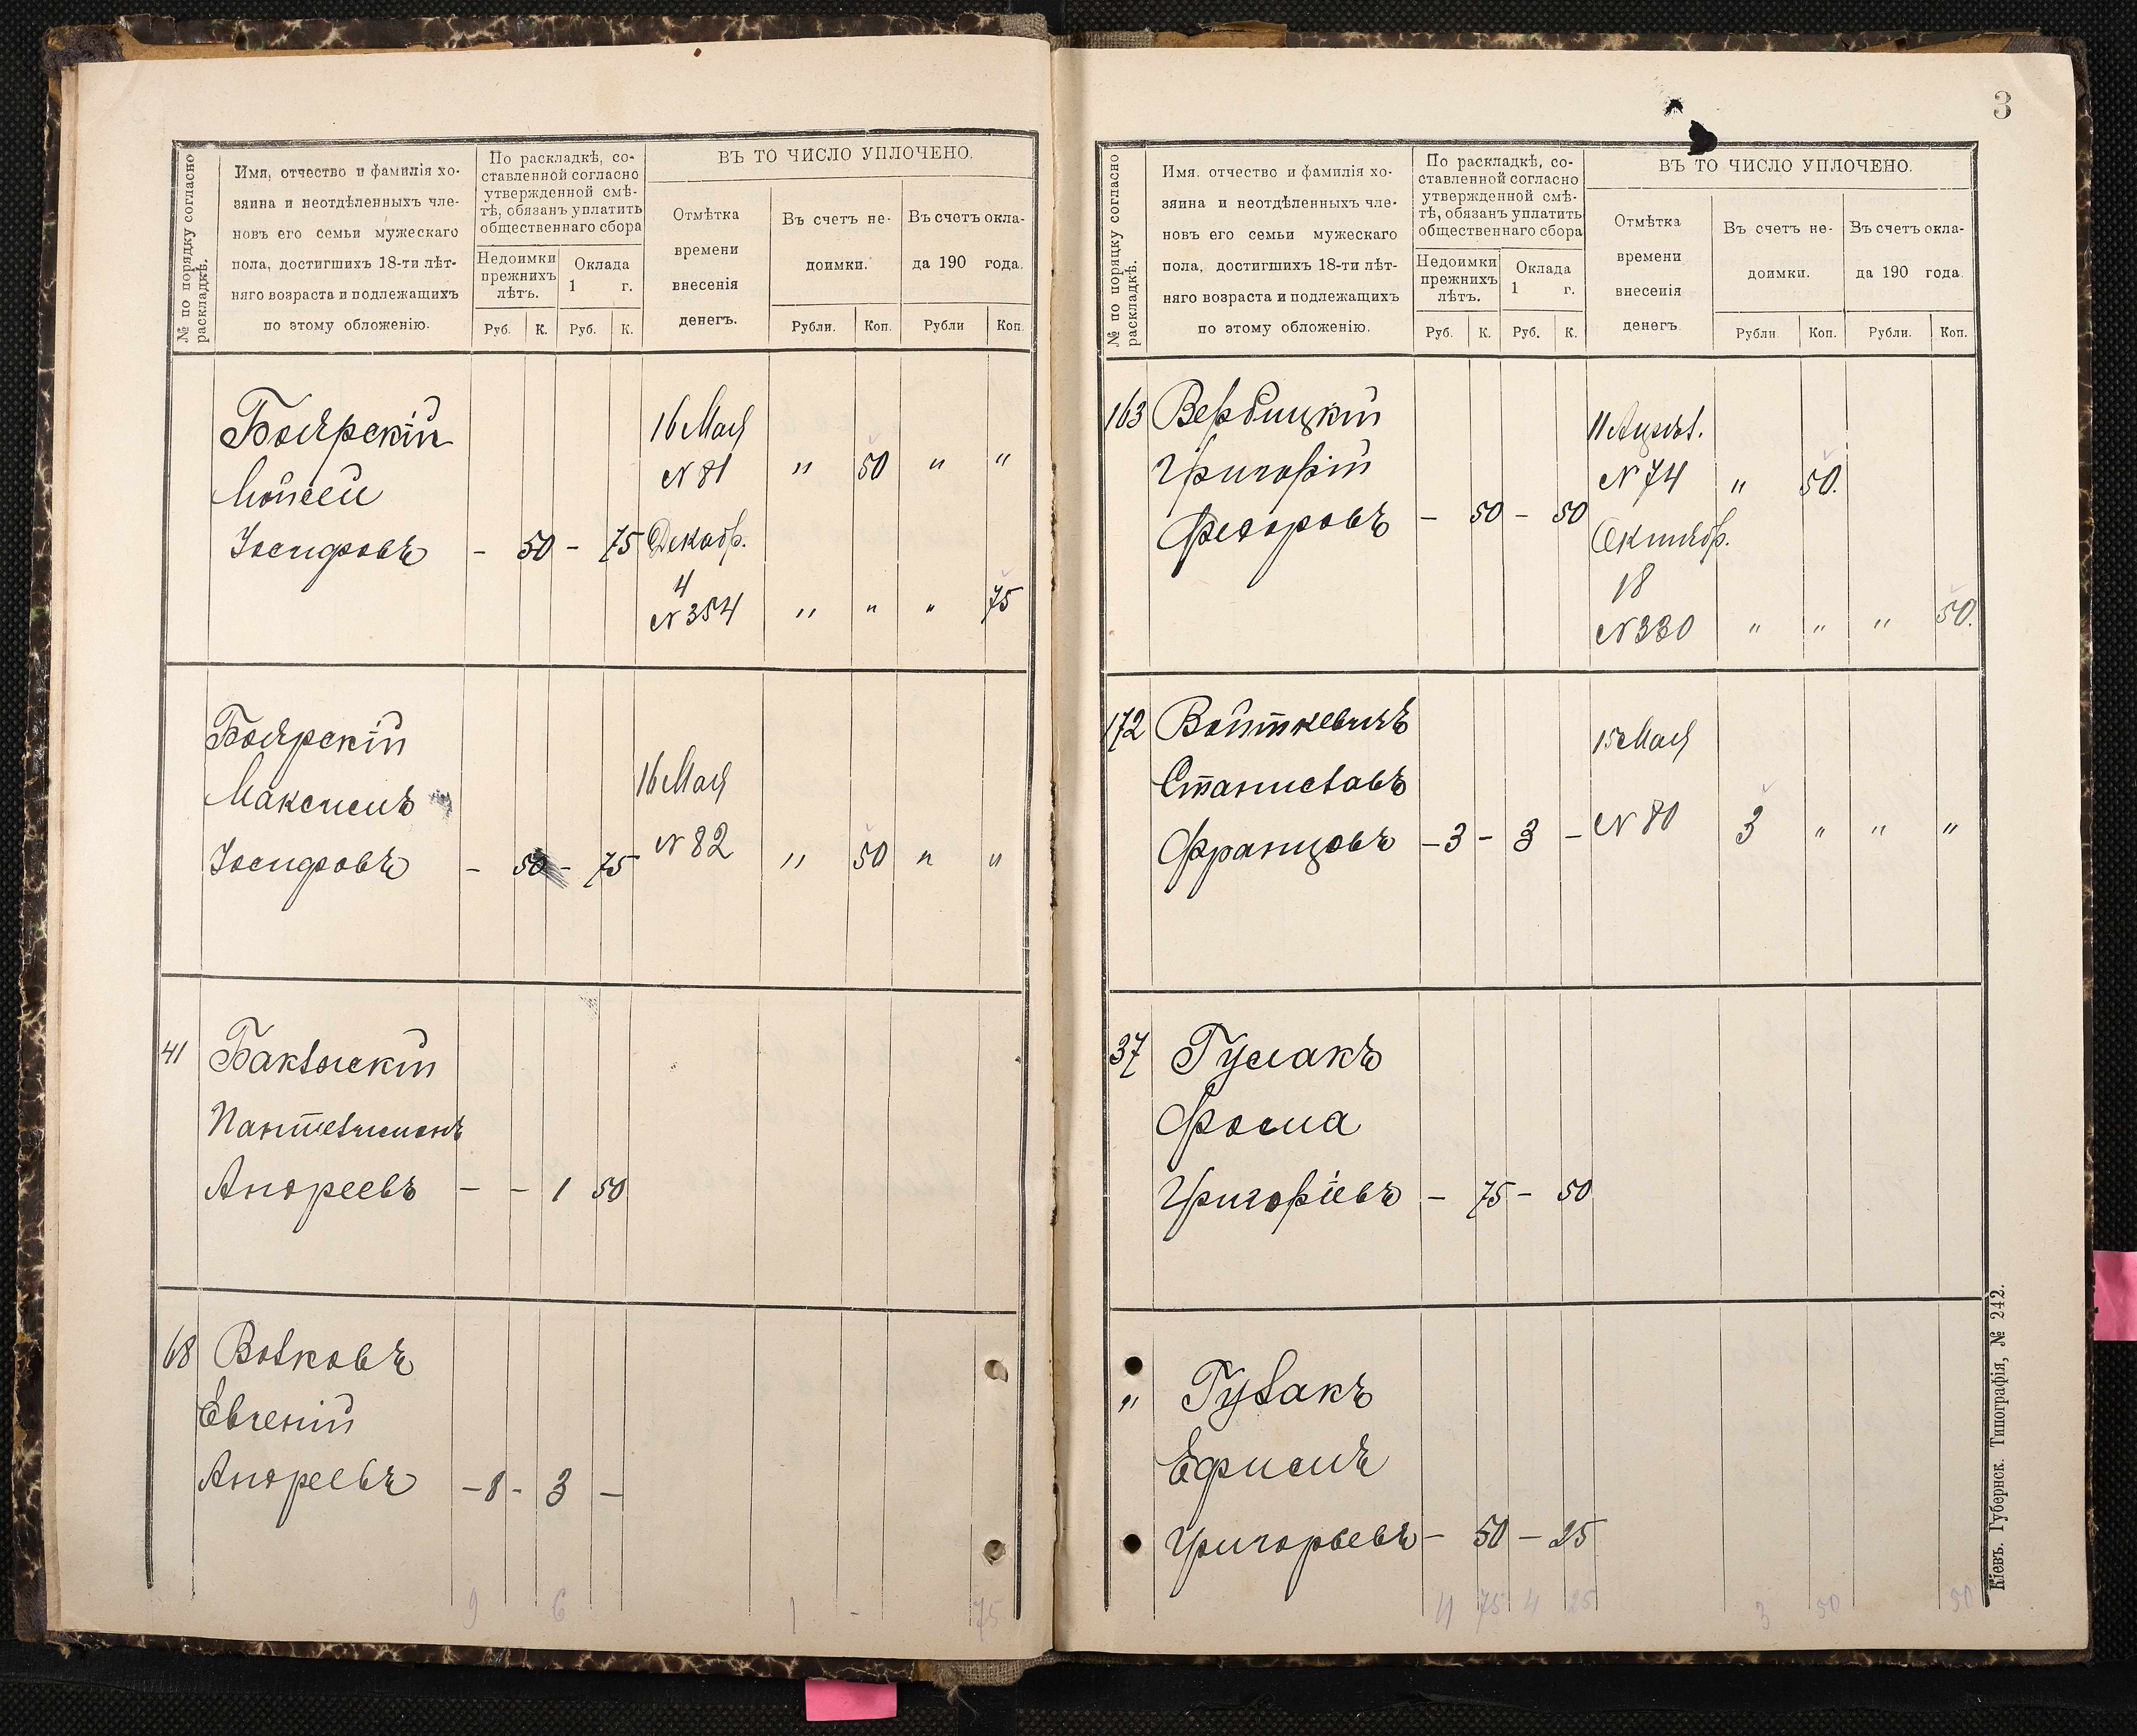 № по порядку согласно
раскладкѣ.
Имя, отчество и фамилія хо-
зяина и неотдѣленныхъ чле-
новъ его семьи мужескаго
пола, достигшихъ 18-ти лѣт-
няго возраста и подлежащихъ
по этому обложенію.
По раскладкѣ, со-
ставленной согласно
утвержденной смѣ-
тѣ, обязанъ уплатить
общественнаго сбора
Недоимки
прежнихъ
лѣтъ.
Оклада
1 г.
Руб. К. Руб. К.
ВЪ ТО ЧИСЛО УПЛОЧЕНО.
Отмѣтка
времени
внесенія
денегъ.
Въ счетъ не-
доимки.
Рубли. Коп.
Въ счетъ окла-
да 190 года.
Рубли Коп.
Боярскій
Мойсей
Іосифовъ - 50 - 75
16 Мая
N 81 " 50 " "
Декабр.
4
N 354 " " " 75
Боярскій
Максимъ
Іосифовъ - 50 - 75
16 Мая
N 82 " 50 " "
41 Баклинскій
Пантелимонъ
Андреевъ - - 1 50
68 Волковъ
Евгеній
Андреевъ - 8 - 3 -
9 6 1 - 75
3
№ по порядку согласно
раскладкѣ.
Имя. отчество и фамилія хо-
зяина и неотдѣленныхъ чле-
новъ его семьи мужескаго
пола, достигшихъ 18-ти лѣт-
няго возраста и подлежащихъ
по этому обложенію.
По раскладкѣ, со-
ставленной согласно
утвержденной смѣ-
тѣ, обязанъ уплатить
общественнаго сбора
Недоимки
прежнихъ
лѣтъ.
Оклада
1 г.
Руб. К. Руб. К.
ВЪ ТО ЧИСЛО УПЛОЧЕНО.
Отмѣтка
времени
внесенія
денегъ
Въ счетъ не-
доимки.
Рубли Коп.
Въ счетъ окла-
да 190 года
Рубли. Коп.
163 Вербицкій
Григорій
Федоровъ - 50 - 50
N 74 " 50.
Октябр.
18
N 330 " " " 50.
172 Войткевичъ
Станиславъ
Францовъ - 3 - 3 -
15 Мая
N 80 3 " " "
37 Гусакъ
Фома
Григоріевъ - 75 - 50
" Гулакъ
Ефимъ
Григорьевъ - 50 - 25
4 75 4 25 3 50 50
Кіевъ. Губернск. Типографія, № 242.